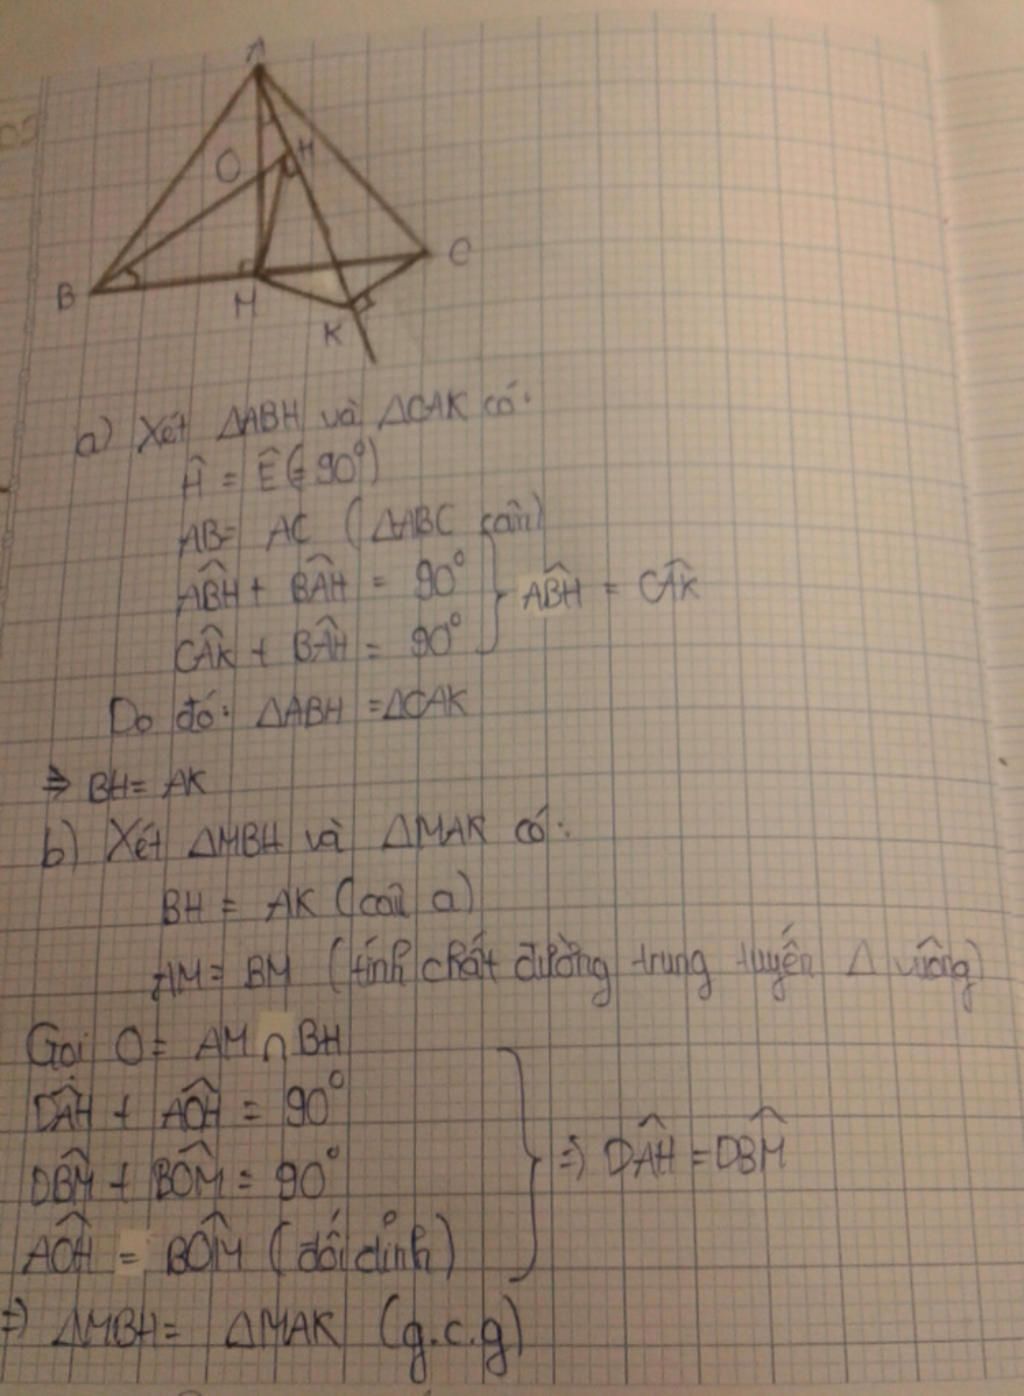 A
O H
B C
M
K
a) Xét ΔABH và ΔCAK có:
Ĥ = Ê (= 90°)
AB = AC (ΔABC cân)
ABĤ + BAĤ = 90°
ABĤ = CAK̂
CAK̂ + BAĤ = 90°
Do đó: ΔABH = ΔCAK
⇒ BH = AK
b) Xét ΔMBH và ΔMAK có:
BH = AK (câu a)
AM = BM (tính chất đường trung tuyến Δ vuông)
Gọi O = AM ∩ BH
OAĤ + AOĤ = 90°
OBM̂ + BOM̂ = 90°
⇒ OAĤ = OBM̂
AOĤ = BOM̂ (đối đỉnh)
⇒ ΔMBH = ΔMAK (g.c.g)